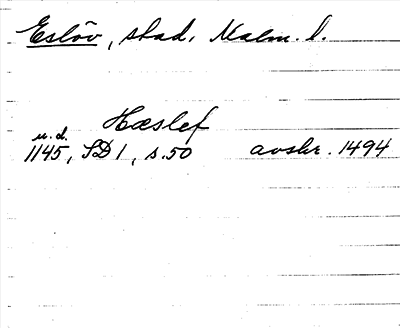 Eslöv, stad, Malm. l.
Hæslef
u.d.
1145, SD 1, s. 50 avskr. 1494